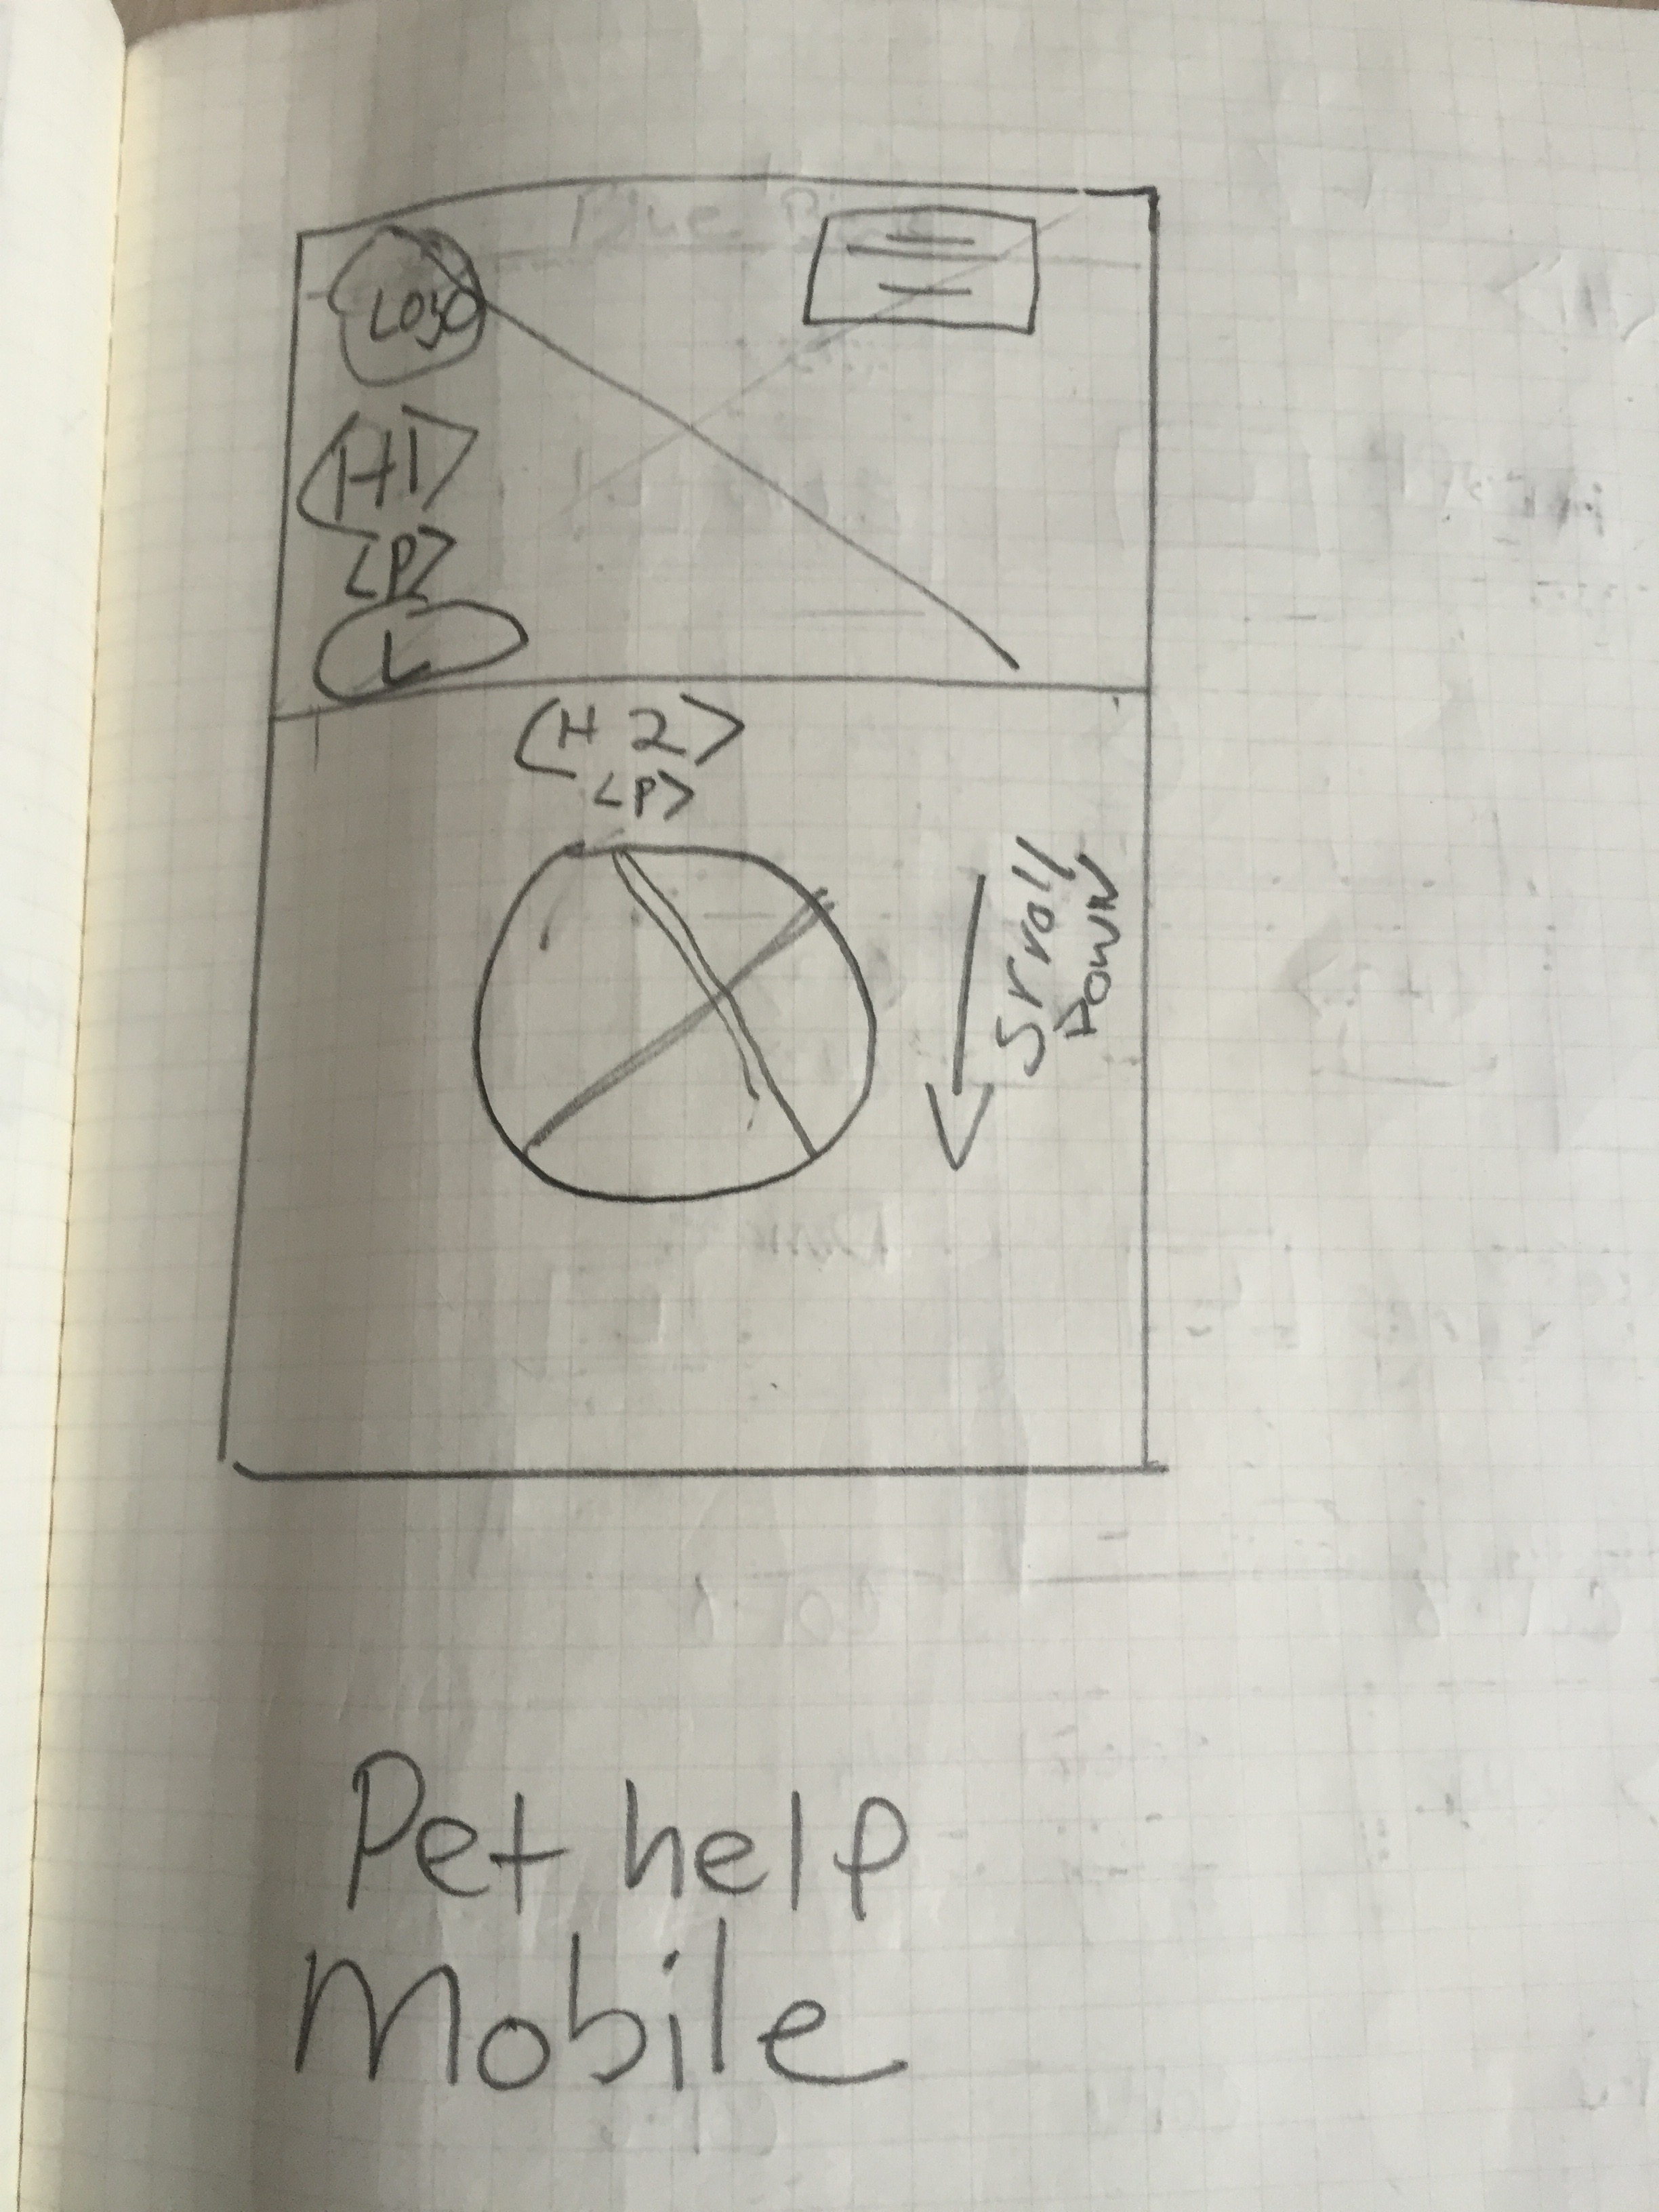 Logo
<H1>
<P>
L
<H2>
<P>
Srroll
DOWN
Pet help
Mobile